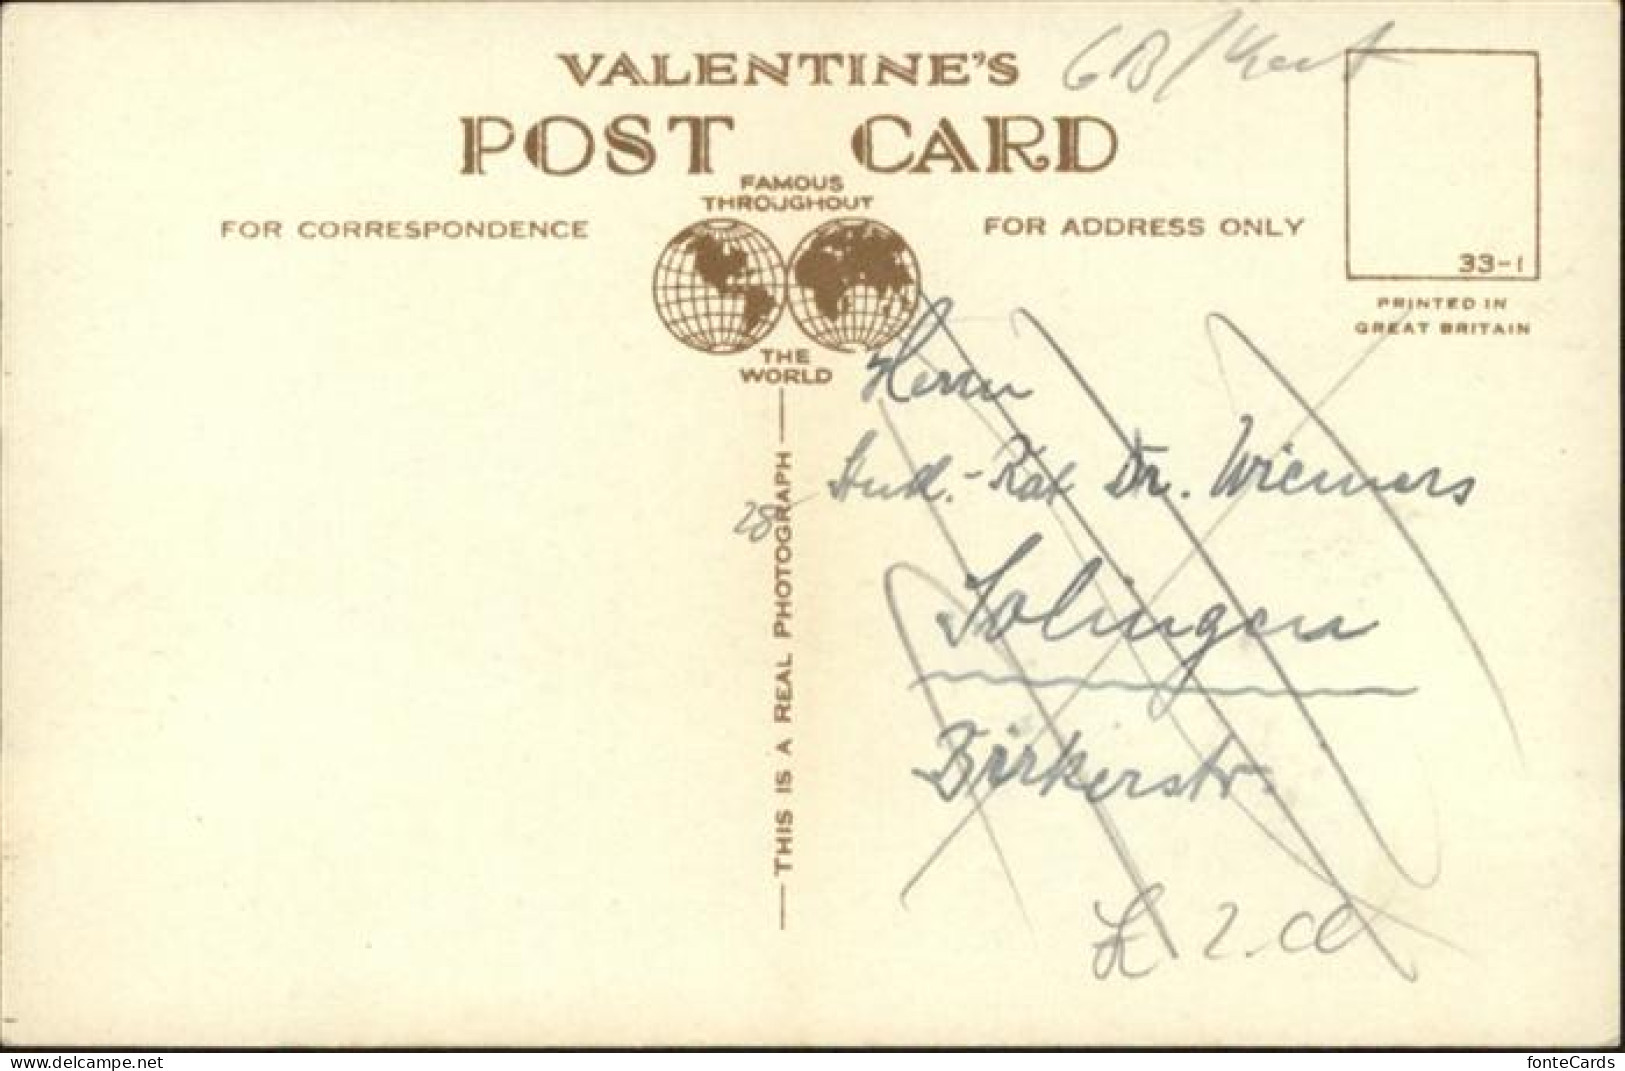 VALENTINE'S GB/Kent
POST CARD
FAMOUS
THROUGHOUT
THE
WORLD
FOR CORRESPONDENCE
FOR ADDRESS ONLY
33-1
PRINTED IN
GREAT BRITAIN
THIS IS A REAL PHOTOGRAPH
28-
Herrn
Stud.-Rat Dr. Wiemers
Solingen
Birkerstr.
delcampe.net
fonteCards